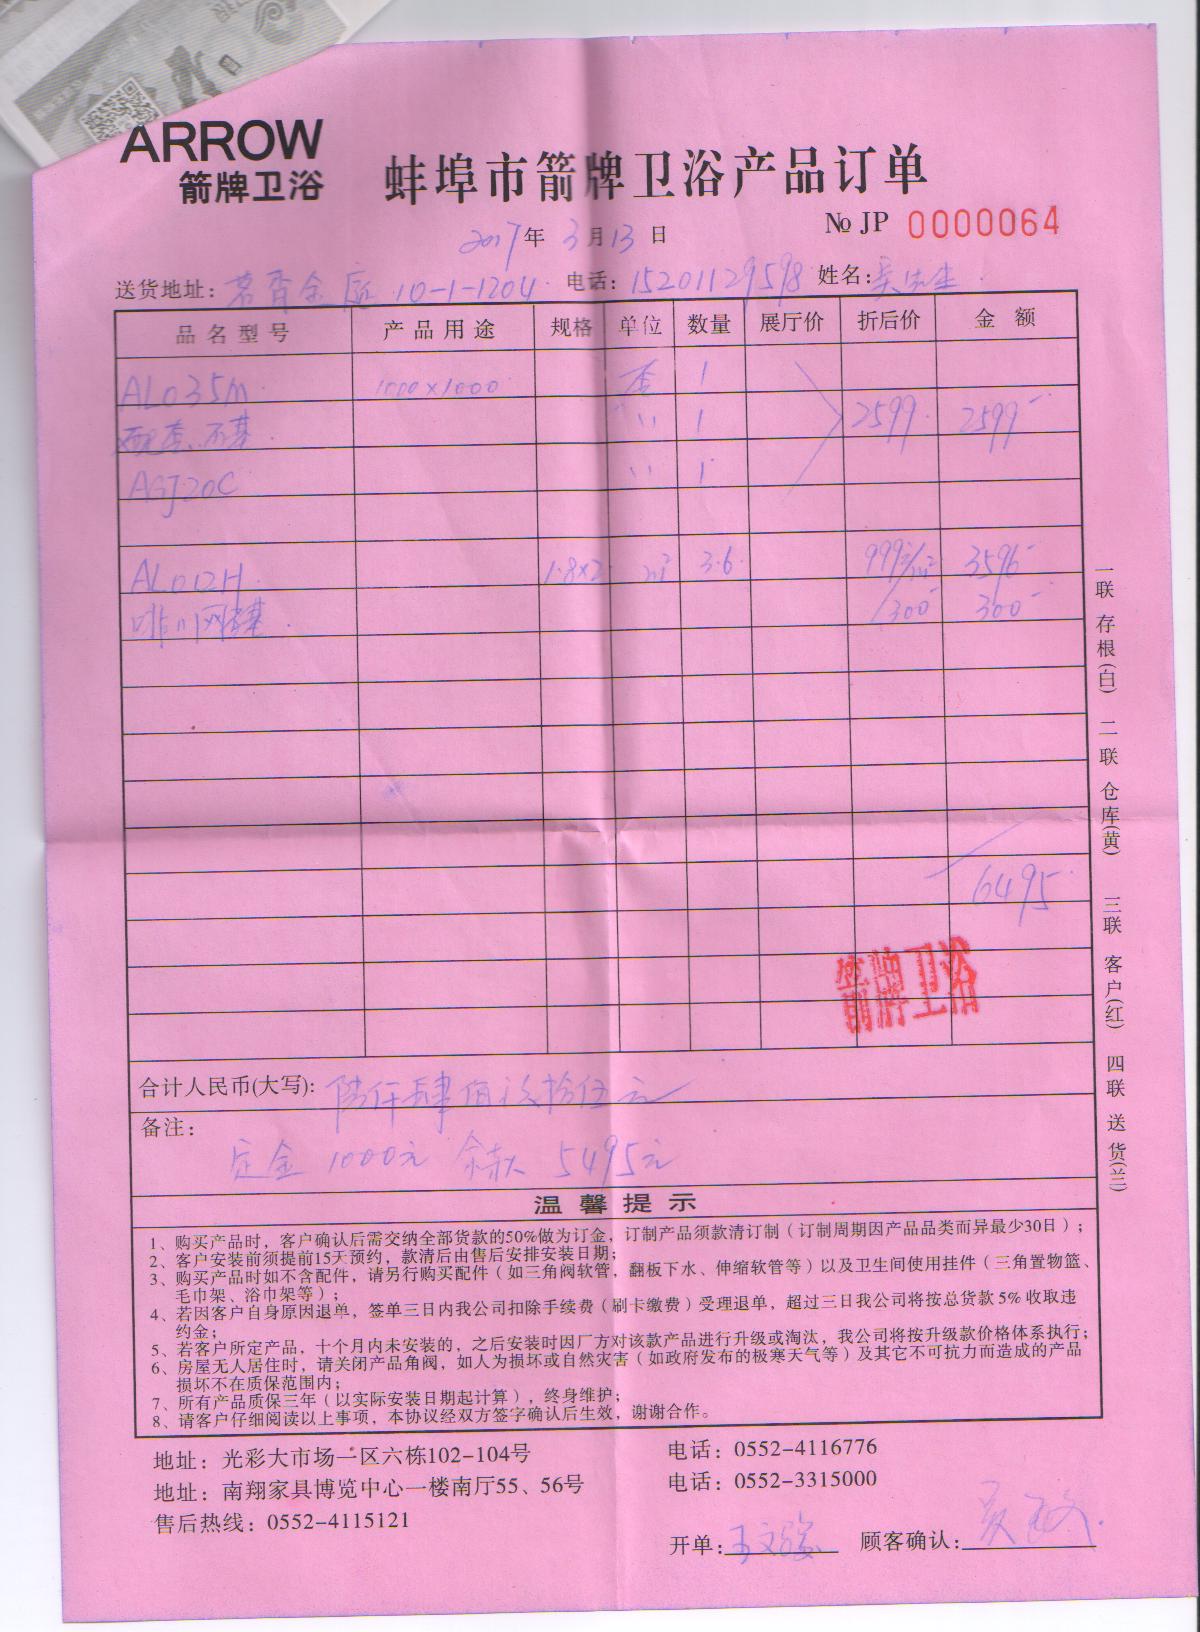 ARROW
箭牌卫浴
蚌埠市箭牌卫浴产品订单
2017年 3月13日
№ JP 0000064
送货地址: 茗香金庭 10-1-1204 电话: 15201129598 姓名: 吴先生
品名型号 产品用途 规格 单位 数量 展厅价 折后价 金额
AL035M 1000×1000 套 1
配套石基 〃 1 2599 2599-
AGJ20C 〃 1
AL012H 1.8×2 m² 3.6 999元/m² 3596-
网石基 300- 300-
6495
箭牌卫浴
合计人民币(大写): 陆仟肆佰玖拾伍元
备注:
定金 1000元 余款 5495元
温馨提示
1、购买产品时，客户确认后需交纳全部货款的50%做为订金，订制产品须款清订制（订制周期因产品品类而异最少30日）；
2、客户安装前须提前15天预约，款清后由售后安排安装日期；
3、购买产品时如不含配件，请另行购买配件（如三角阀软管，翻板下水、伸缩软管等）以及卫生间使用挂件（三角置物篮、
毛巾架、浴巾架等）；
4、若因客户自身原因退单，签单三日内我公司扣除手续费（刷卡缴费）受理退单，超过三日我公司将按总货款5%收取违
约金；
5、若客户所定产品，十个月内未安装的，之后安装时因厂方对该款产品进行升级或淘汰，我公司将按升级款价格体系执行；
6、房屋无人居住时，请关闭产品角阀，如人为损坏或自然灾害（如政府发布的极寒天气等）及其它不可抗力而造成的产品
损坏不在质保范围内；
7、所有产品质保三年（以实际安装日期起计算），终身维护；
8、请客户仔细阅读以上事项，本协议经双方签字确认后生效，谢谢合作。
地址：光彩大市场一区六栋102-104号 电话：0552-4116776
地址：南翔家具博览中心一楼南厅55、56号 电话：0552-3315000
售后热线：0552-4115121
开单: 顾客确认:
一联 存根(白) 二联 仓库(黄) 三联 客户(红) 四联 送货(兰)